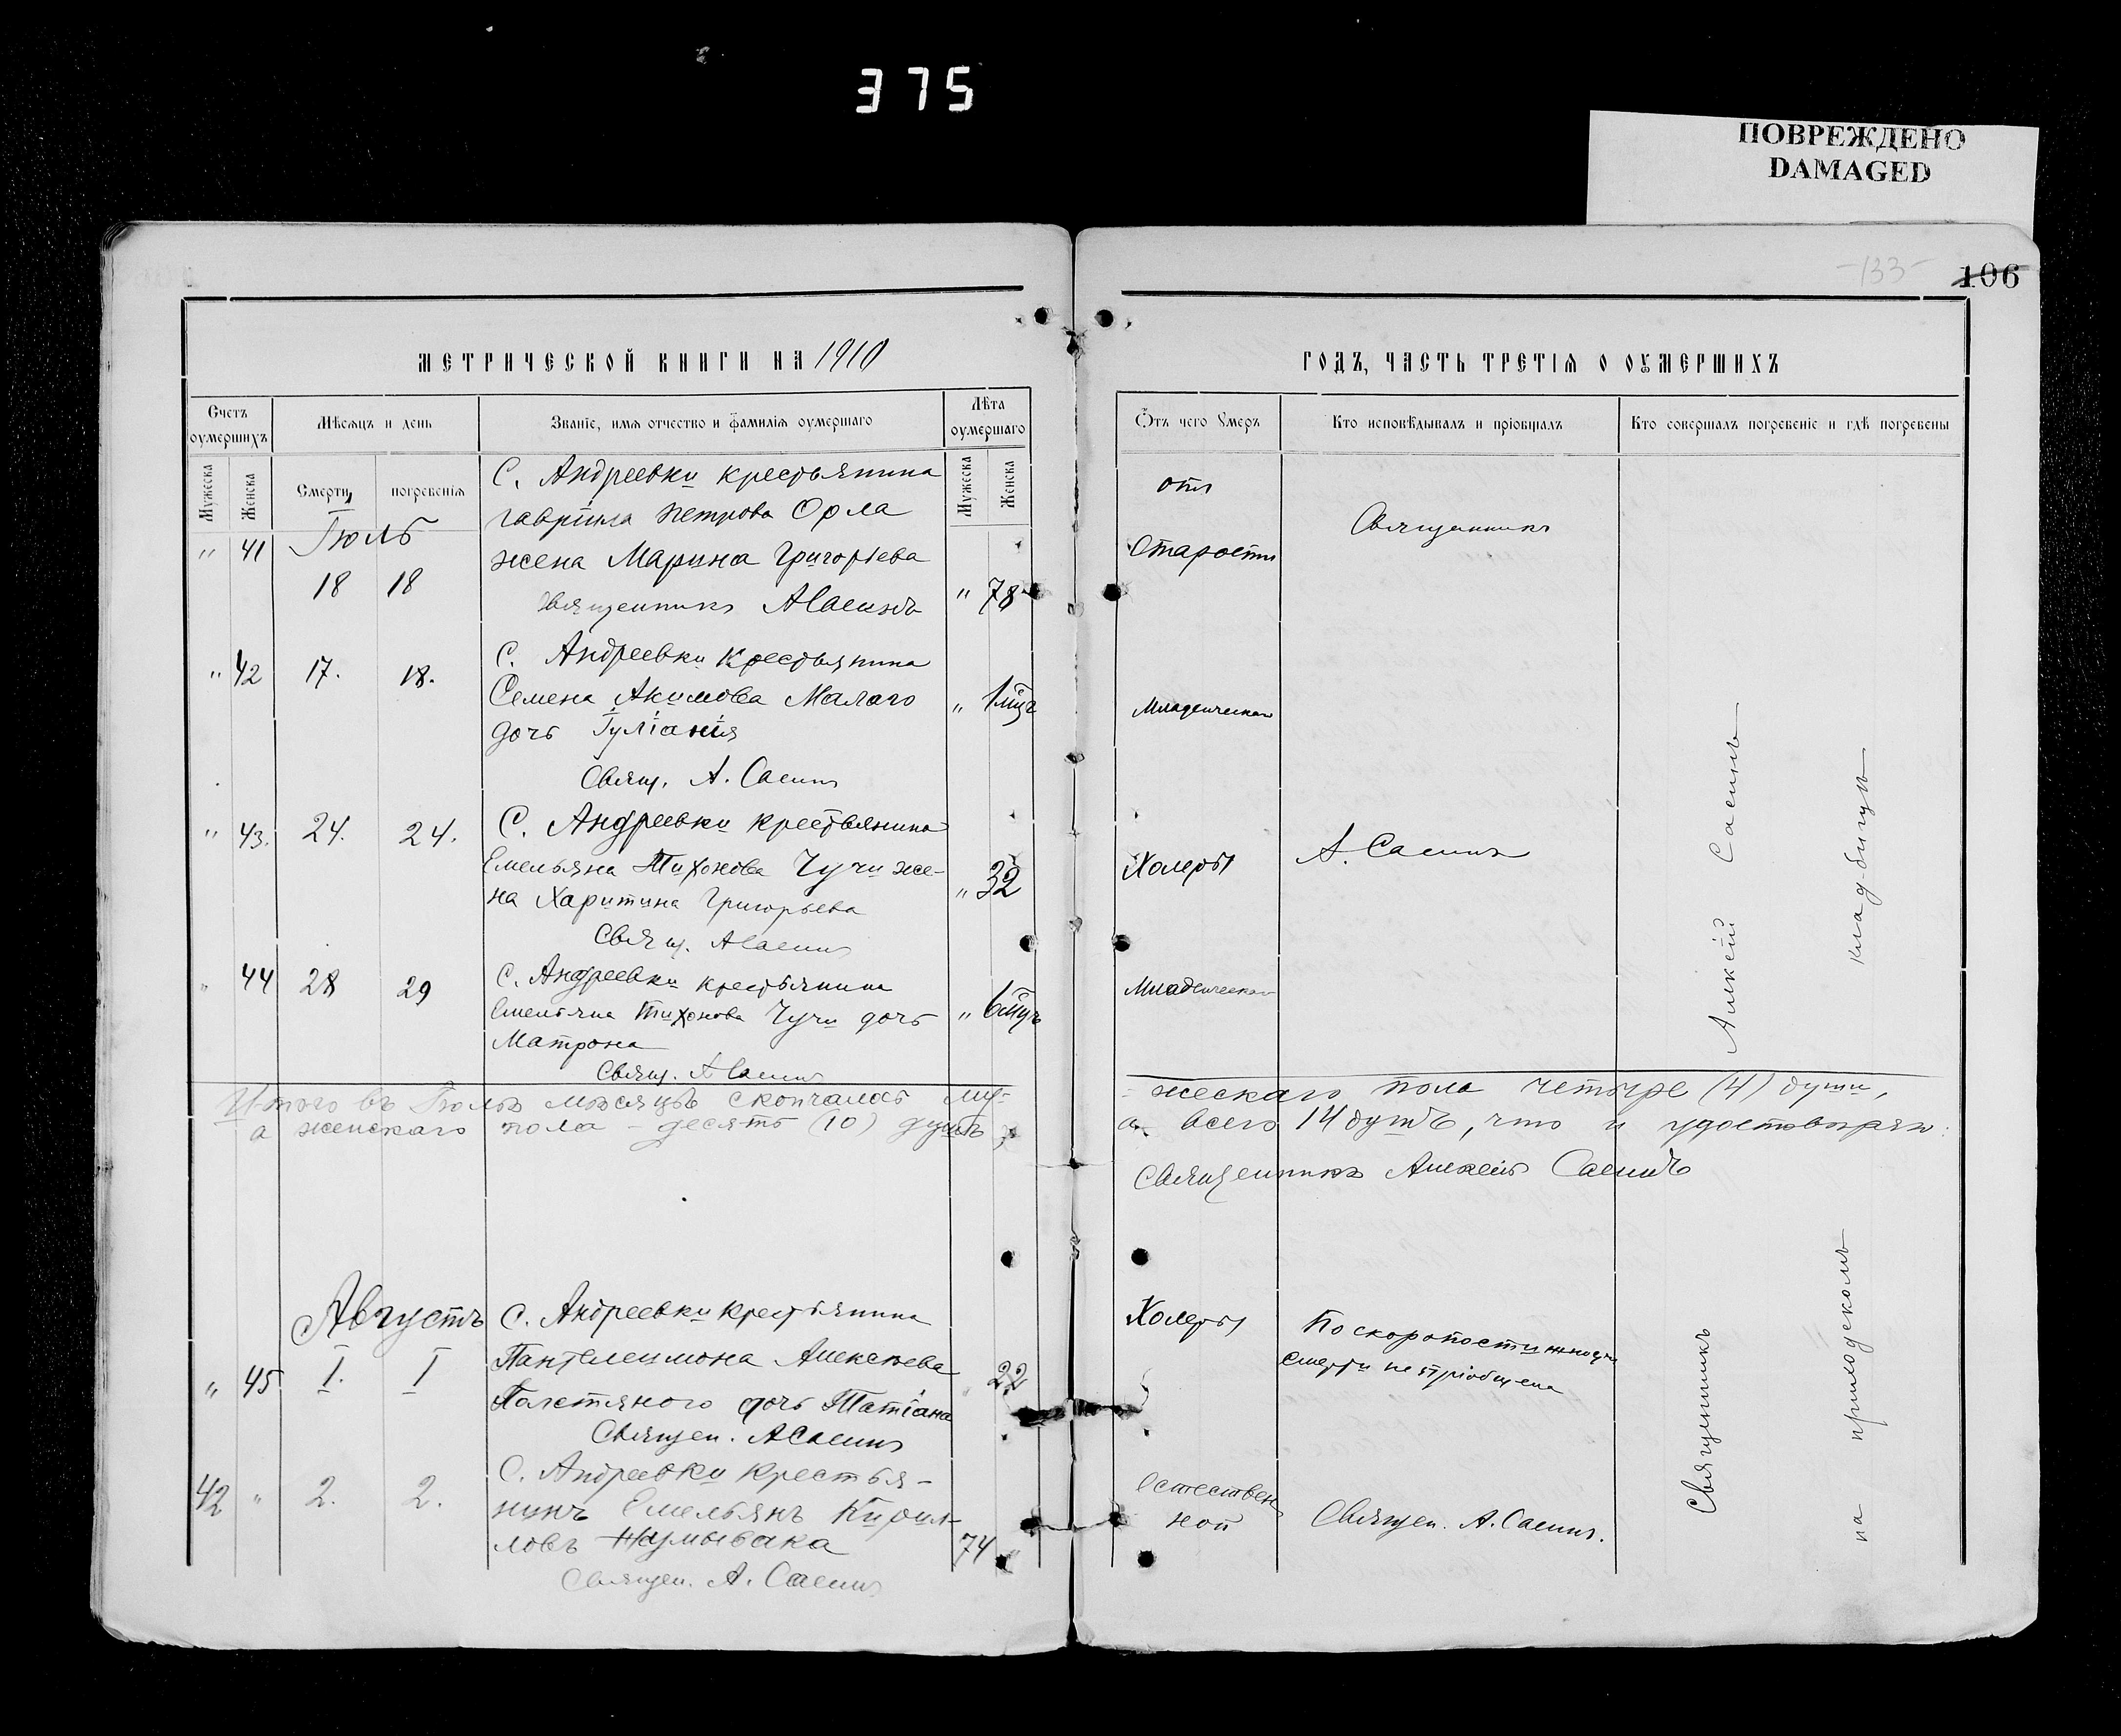 375
ПОВРЕЖДЕНО
DAMAGED
-133-
106
МЕТРИЧЕСКОЙ КНИГИ НА 1910
Счетъ оумершихъ
Мѣсяцъ и день
Званіе, имя отчество и фамилія оумершаго
Лѣта оумершаго
Мужеска
Женска
Смерти
погребенія
Мужеска
Женска
Іюль
" 41 18 18
С. Андреевки крестьянина
Гавріила Петрова Орла
жена Марина Григорьева
Священникъ А Саенкъ
" 78
" 42 17. 18.
С. Андреевки крестьянина
Семена Акимова Малаго
дочь Іуліанія
Свящ. А.
" 1 мѣц
" 43. 24. 24.
С. Андреевки крестьянина
Емельяна Тихонова Чучи же-
на Харитина Григорьева
Свящ. А
" 32
" 44 28 29
С. Андреевки крестьянина
Емельяна Тихонова Чучи дочь
Матрона
Свящ. А
" 6 мѣц
Итого въ Іюлѣ мѣсяцѣ скончалось му-
а женскаго пола – десять (10) душъ
Августъ
" 45 I. I
С. Андреевки крестьянина
Пантелеимона Алексѣева
дочь Татіана
Священ. А
22
42 " 2. 2.
С. Андреевки крестья-
нинъ Емельянъ Кирил-
ловъ
Священ. А.
74
ГОДЪ, ЧАСТЬ ТРЕТІЯ О ОУМЕРШИХЪ
Отъ чего Умеръ
Кто исповѣдывалъ и пріобщалъ
Кто совершалъ погребеніе и гдѣ погребены
отъ
старости
Священникъ
Младенческой
Холеры
А.
Младенческой
Алексій
кладбищѣ
жескаго пола четыре (4) души,
а всего 14 душъ, что и удостовѣряю:
Священникъ Алексій
Холеры
По скоропостижности
смерти не пріобщена
Естествен
ной
Священ. А.
Священникъ
на приходскомъ